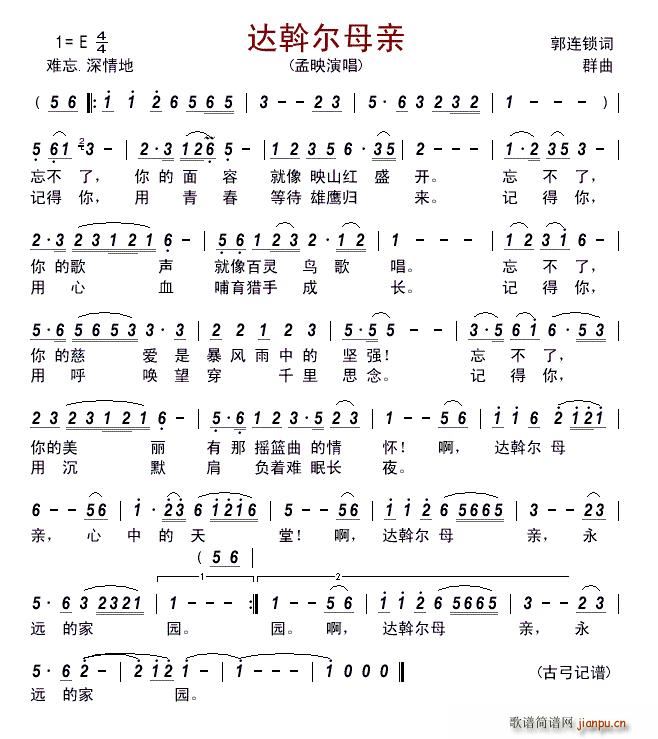 达斡尔母亲
1= E 4/4
郭连锁词
难忘.深情地
(孟映演唱)
群曲
( 5 6 ‖: 1 1 2 6 5 6 5 | 3 - - 2 3 | 5 · 6 3 2 3 2 | 1 - - - )
5 6 1 2 3 - | 2 · 3 1 2 6 5 - | 1 2 3 5 6 · 3 5 | 2 - - - | 1 · 2 3 5 3 - |
忘不了, 你的面容 就像映山红盛开。 忘不了,
记得你, 用青春 等待雄鹰归来。 记得你,
2 · 3 2 3 1 2 1 6 - | 5 6 1 2 3 2 · 1 2 | 1 - - - | 1 2 3 1 6 - |
你的歌声 就像百灵鸟歌唱。 忘不了,
用心血 哺育猎手成长。 记得你,
5 · 6 5 6 5 3 2 - | 2 2 1 2 3 5 · 3 | 5 - - - | 3 · 5 6 1 6 · 5 3 |
你的慈爱是暴风雨中的坚强! 忘不了,
用呼唤望穿千里思念。 记得你,
2 3 2 3 1 2 1 6 - | 5 · 6 1 2 3 · 5 2 3 | 1 - - 5 6 | 1 1 6 2 1 2 1 |
你的美丽有那摇篮曲的情怀! 啊, 达斡尔母
用沉默肩负着难眠长夜。
6 - - 5 6 | 1 · 2 6 1 2 1 6 | 5 - - 5 6 | 1 1 2 6 5 6 6 5 | 3 - - 2 3 |
亲, 心中的天堂! 啊, 达斡尔母亲, 永
( 5 6 |
1 2
5 · 6 3 2 3 2 1 | 1 - - - :‖ 1 - - 5 6 | 1 1 2 6 5 6 6 5 | 3 - - 2 3 |
远的家园。 园。 啊, 达斡尔母亲, 永
5 · 6 2 - | 2 1 2 1 - | 1 - - - | 1 0 0 0 ‖
(古弓记谱)
远的家园。
歌谱简谱网
jianpu.cn